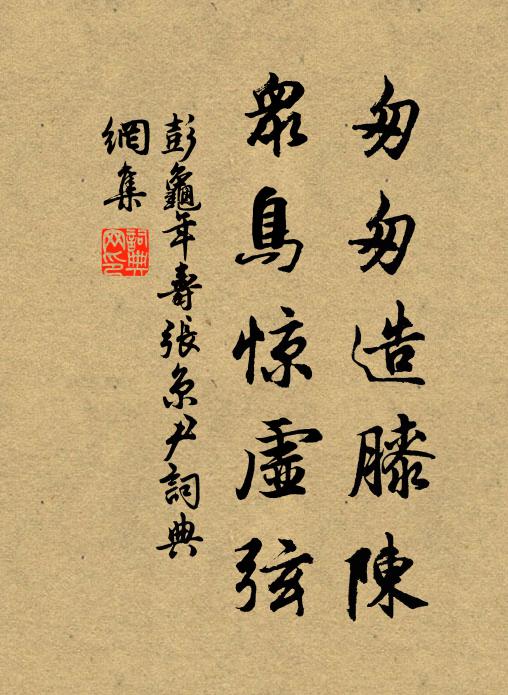 匆匆造膝陳
眾鳥惊虛弦
彭龜年壽張京尹詞典
網集
詞典
网印